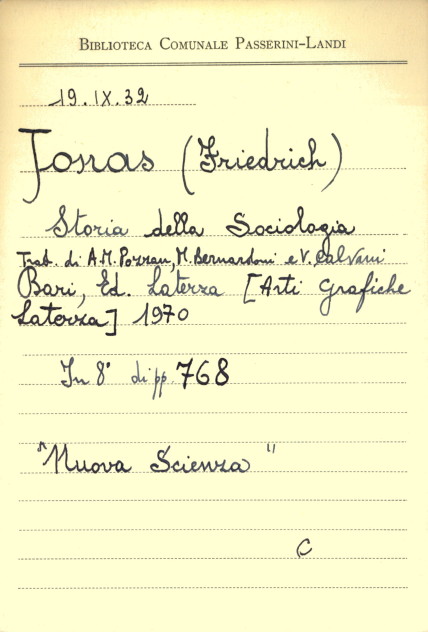 BIBLIOTECA COMUNALE PASSERINI-LANDI
19.IX.32
Jonas (Friedrich)
Storia della Sociologia
Trad. di A.M. Pozzan, M. Bernardoni e V. Calvani
Bari, Ed. Laterza [Arti Grafiche
Laterza] 1970
In 8° di pp. 768
"Nuova Scienza"
C